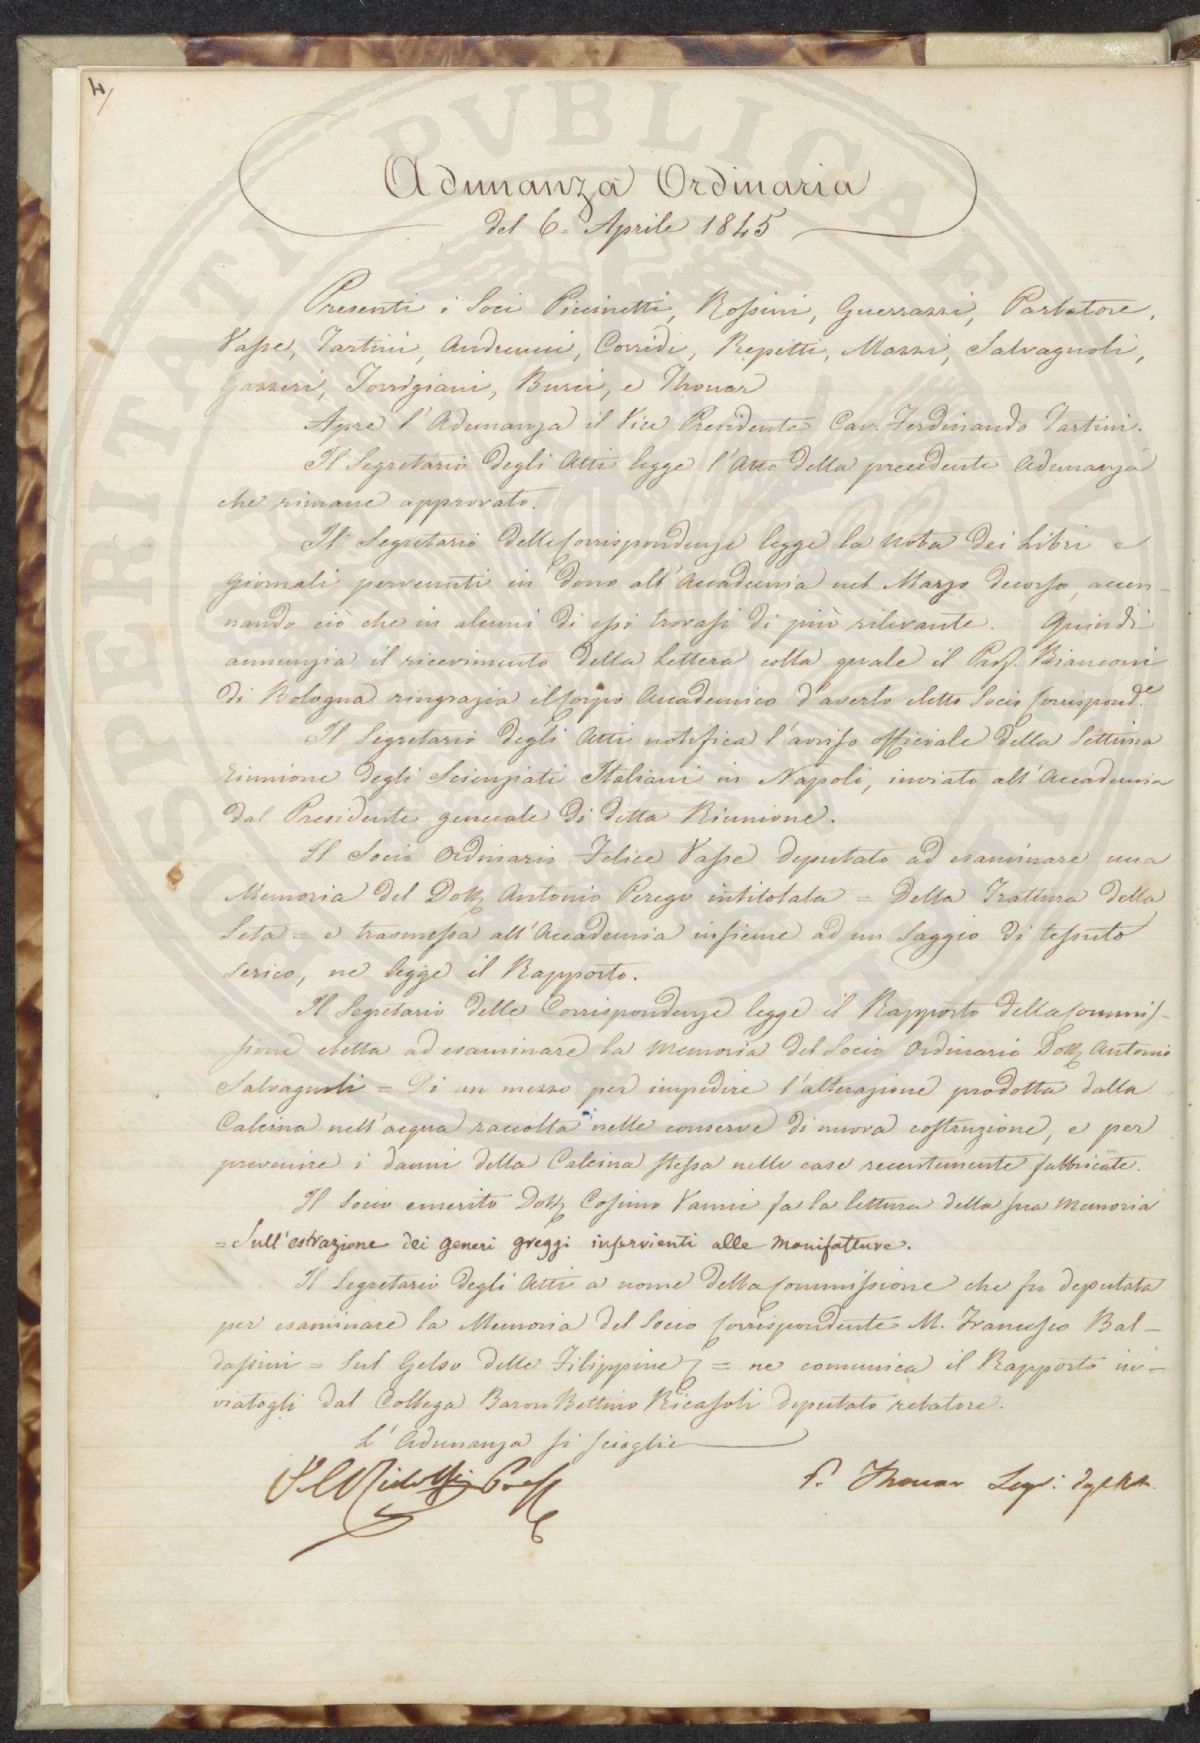 4/
Adunanza Ordinaria
del 6. Aprile 1845
Presenti i Soci Piccinetti, Rossini, Guerrazzi, Parlatore,
Vasse, Tartini, Andreucci, Corridi, Repetti, Mazzi, Salvagnoli,
Gazzeri, Torrigiani, Burci, e Thouar
Apre l'Adunanza il Vice Presidente Cav. Ferdinando Tartini.
Il Segretario degli Atti legge l'Atto della precedente Adunanza
che rimane approvato.
Il Segretario delle Corrispondenze legge la Nota dei Libri e
Giornali pervenuti in dono all'Accademia nel Marzo decorso, accen-
nando ciò che in alcuni di essi trovasi di più rilevante. Quindi
annunzia il ricevimento della Lettera colla quale il Prof. Bianconi
di Bologna ringrazia il Corpo Accademico d'averlo eletto Socio Corrispond.e
Il Segretario degli Atti notifica l'avviso officiale della Settima
riunione degli Scienziati Italiani in Napoli, inviato all'Accademia
dal Presidente generale di detta Riunione.
Il Socio Ordinario Felice Vasse deputato ad esaminare una
Memoria del Dott. Antonio Perego intitolata = Della Trattura della
Seta = e trasmessa all'Accademia insieme ad un Saggio di tessuto
serico, ne legge il Rapporto.
Il Segretario delle Corrispondenze legge il Rapporto della Commis-
sione eletta ad esaminare la Memoria del Socio Ordinario Dott. Antonio
Salvagnoli = Di un mezzo per impedire l'alterazione prodotta dalla
Calcina nell'acqua raccolta nelle conserve di nuova costruzione, e per
prevenire i danni della Calcina stessa nelle case recentemente fabbricate.
Il Socio emerito Dott. Cosimo Vanni fa la lettura della sua Memoria
= Sull'estrazione dei generi greggi inservienti alle Manifatture.
Il Segretario degli Atti a nome della Commissione che fu deputata
per esaminare la Memoria del Socio Corrispondente M. Francesco Bal-
dassini = Sul Gelso delle Filippine = ne comunica il Rapporto in-
viatogli dal Collega Baron Bettino Ricasoli deputato relatore.
L'Adunanza si scioglie
Ridolfi Pres.
P. Thouar Seg.: degli Atti
PVBLICAE
PROSPERITATI